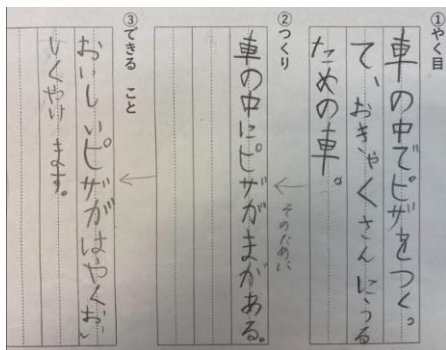 ①やく目
車の中でピザをつくっ
て、おきゃくさんにうる
ための車。
そのために
②つくり
車の中にピザがまがある。
③できること
おいしいピザがはやくおい
しくやけます。